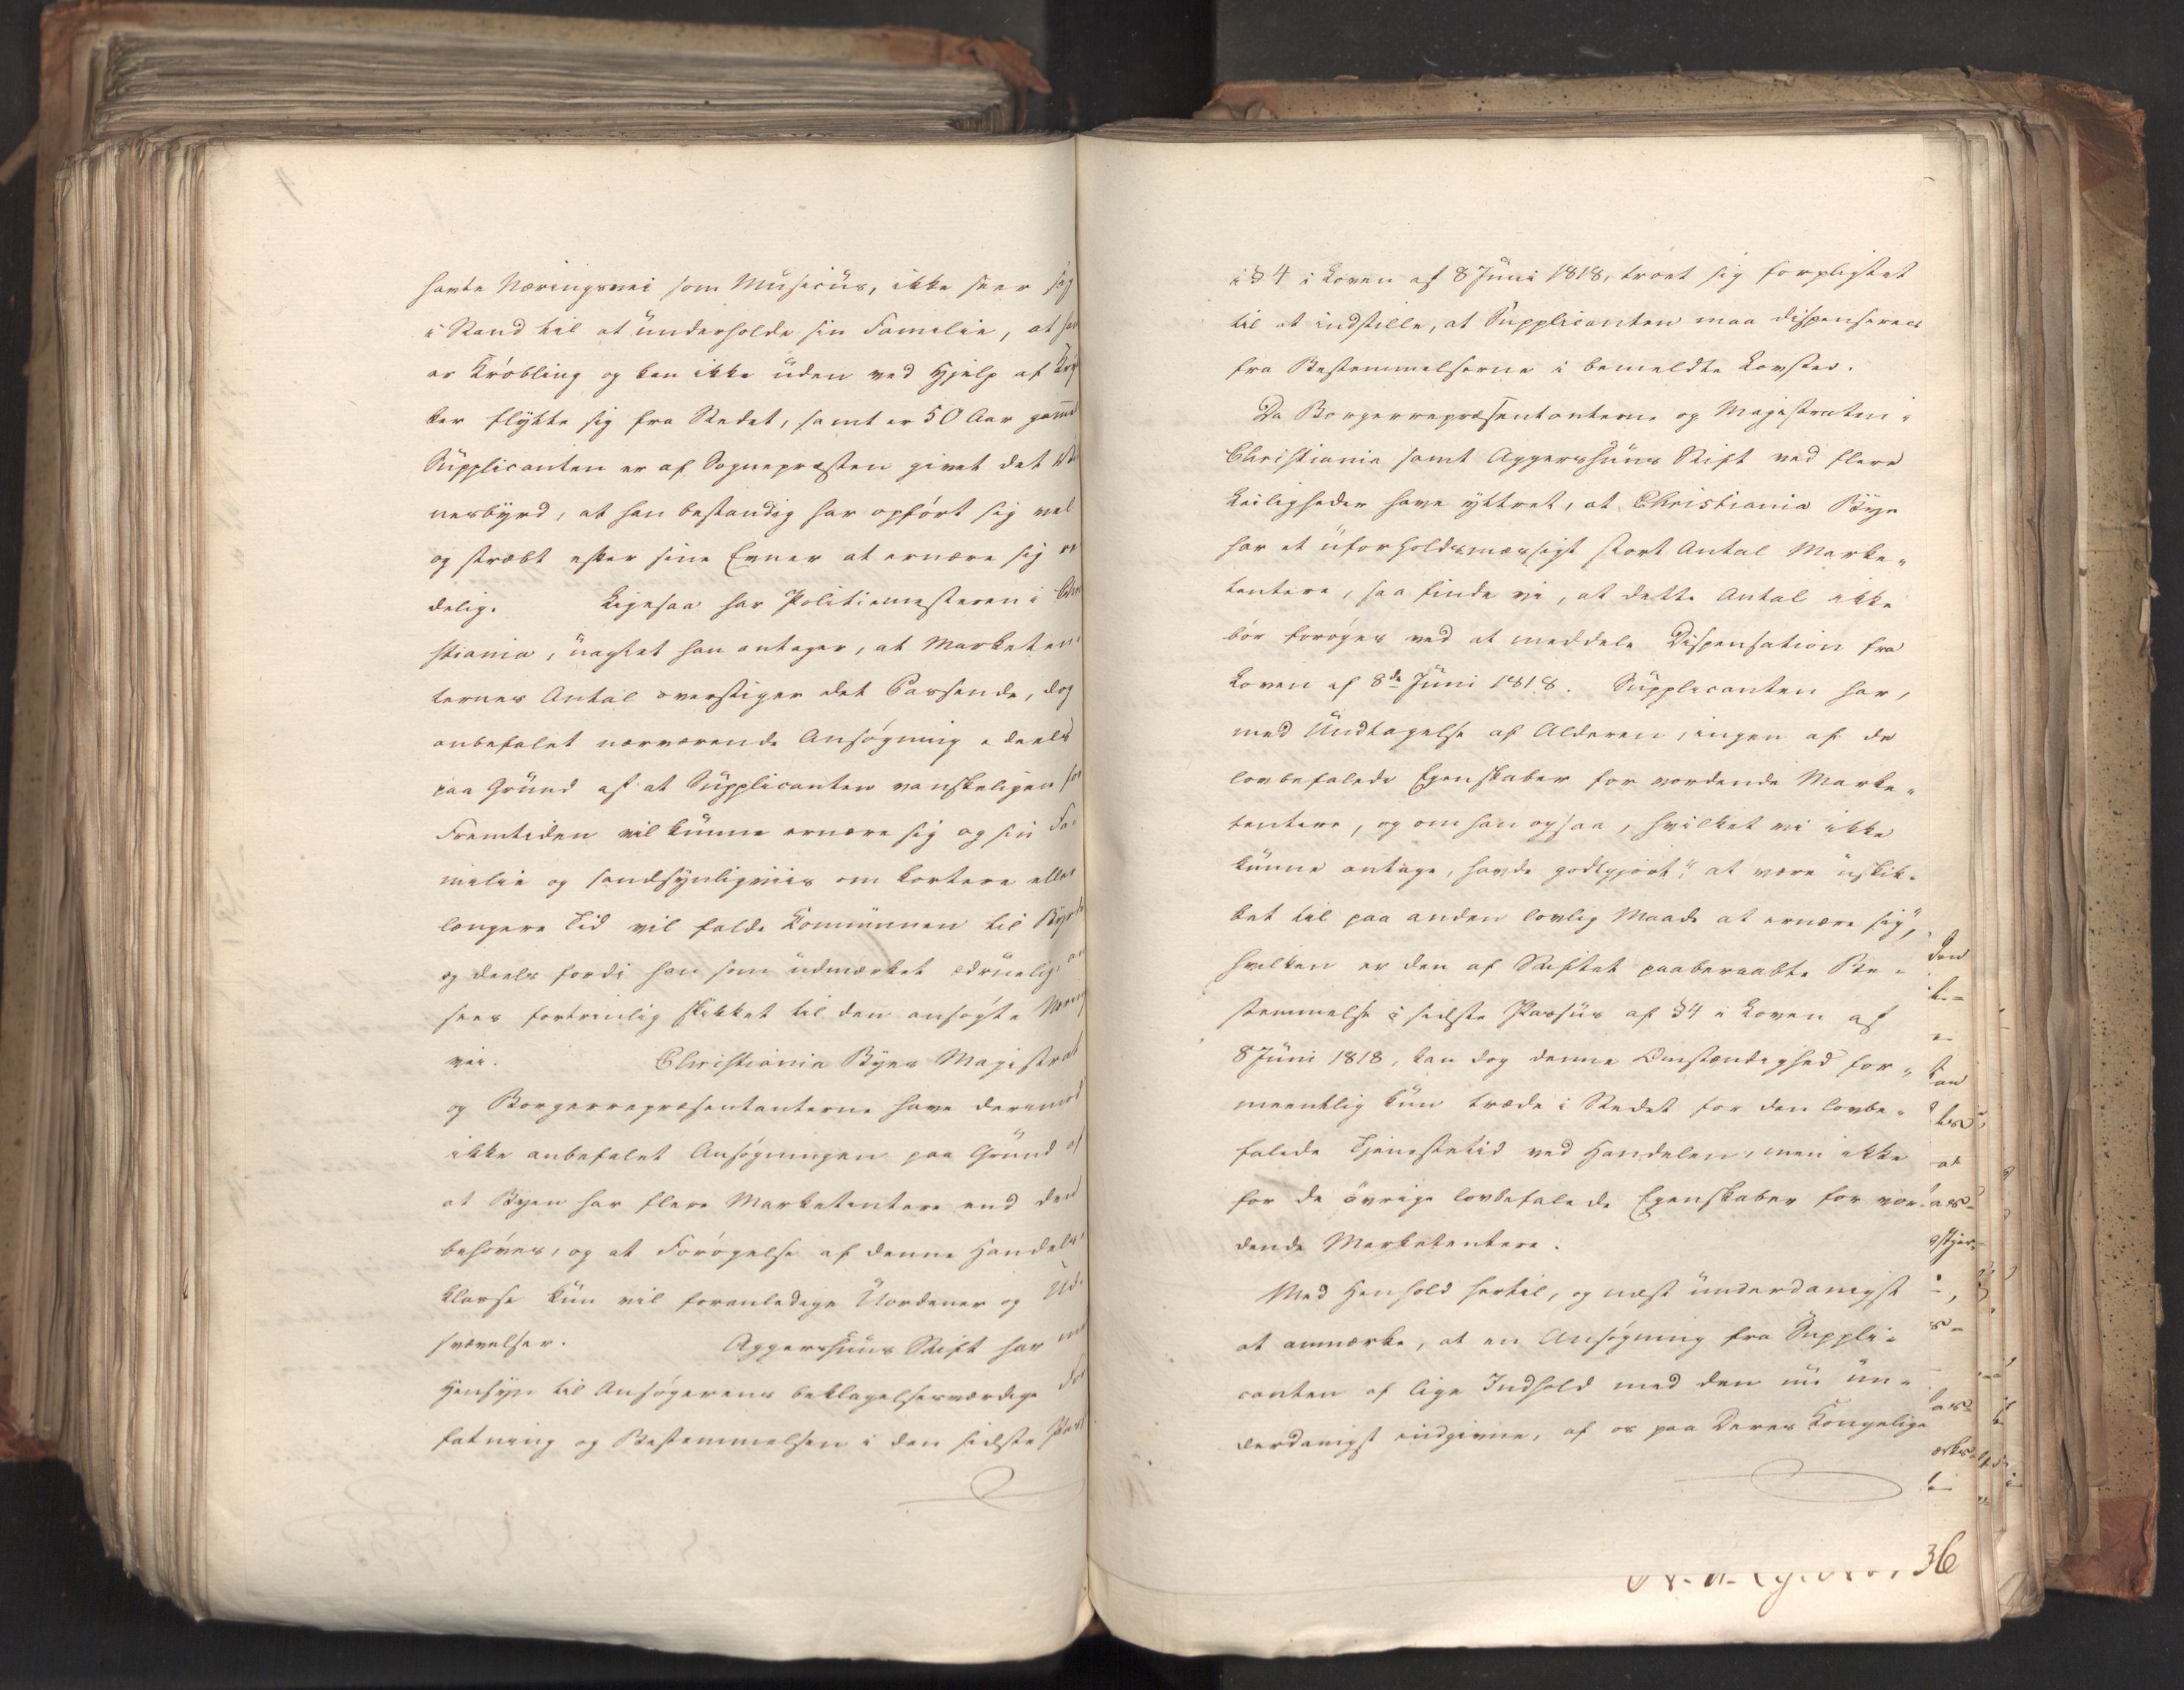 havte Næringsvei som Musicus, ikke seer sig
i Stand til at underholde sin Familie, at han
er Krøbling og kan ikke uden ved Hjelp af Kryk
ker flytte sig fra Stedet, samt er 50 Aar gammel
Supplicanten er af Sognepræsten givet det Vid
nesbyrd, at han bestandig har opført sig vel
og stræbt efter sine Evner at ernære sig re
delig. Ligesaa har Politiemesteren i Chri
stiania, uagtet han antager, at Marketen
ternes Antal overstiger det Passende, dog
anbefalet nærværende Ansøgning, deels
paa Grund af at Supplicanten vanskeligen for
Fremtiden vil kunne ernære sig og sin Fa-
milie og sandsynligviis om kortere eller
længere Tid vil falde Communen til Byrde
og deels fordi han som udmærket ædruelig, an
sees fortrinlig skikket til den ansøgte Næring
vei. Christiania Byes Magistrat
og Borgerrepræsentanterne have derimod
ikke anbefalet Ansøgningen paa Grund af
at Byen har flere Marketentere end den
behøver, og at Forøgelse af denne Handels-
Klasse kun vil foranledige Uordener og Ud-
svævelser. Aggershuus Stift har med
Hensyn til Ansøgerens beklagelsesværdige For
fatning og Bestemmelsen i den sidste Post
i § 4 i Loven af 8 Juni 1818, troet sig forpligtet
til at indstille, at Supplicanten maa dispenseres
fra Bestemmelserne i bemeldte Lovsted.
Da Borgerrepræsentanterne og Magistraten i
Christiania samt Aggershuus Stift ved flere
Leiligheder have yttret, at Christiania Bye
har et uforholdsmæssigt stort Antal Marke-
tentere, saa finde vi, at dette Antal ikke
bør forøges ved at meddele Dispensation fra
Loven af 8de Juni 1818. Supplicanten har,
med Undtagelse af Alderen, ingen af de
lovbefalede Egenskaber for vordende Marke-
tentere, og om han ogsaa, hvilket vi ikke
kunne antage, havde godtgjort "at være uskik-
ket til paa anden lovlig Maade at ernære sig",
hvilken er den af Stiftet paaberaabte Be-
stemmelse i sidste Passus af § 4 i Loven af
8 Juni 1818, kan dog denne Omstændighed for-
meentlig kun træde i Stedet for den lovbe-
falede Tjenestetid ved Handelen, men ikke
for de øvrige lovbefalede Egenskaber for vor-
dende Marketentere.
Med Henhold hertil, og næst underdanigst
at anmærke, at en Ansøgning fra Suppli-
canten af lige Indhold med den nu un-
derdanigst indgivne, af os paa Deres Kongelige
36